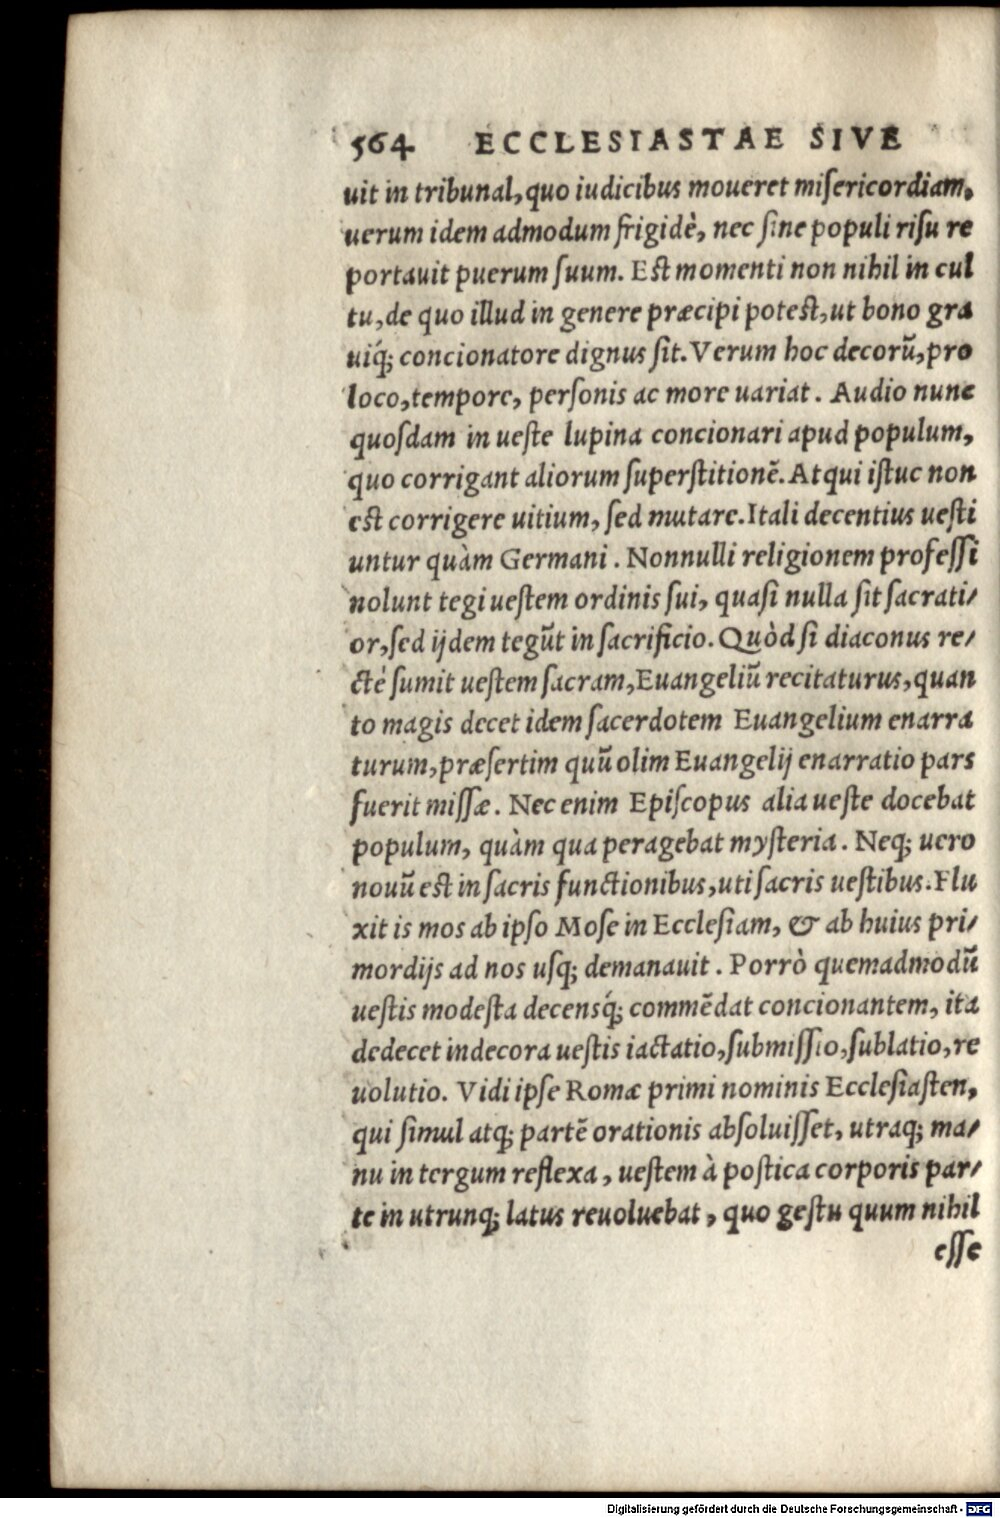 564 ECCLESIASTAE SIVE
uit in tribunal, quo iudicibus moueret miſericordiam,
uerum idem admodum frigidè, nec ſine populi riſu re
portauit puerum ſuum. Eſt momenti non nihil in cul
tu, de quo illud in genere præcipi poteſt, ut bono gra
uiq́; concionatore dignus ſit. Verum hoc decorũ, pro
loco, tempore, perſonis ac more uariat. Audio nunc
quoſdam in ueſte lupina concionari apud populum,
quo corrigant aliorum ſuperſtitionẽ. Atqui iſtuc non
eſt corrigere uitium, ſed mutare. Itali decentius ueſti
untur quàm Germani. Nonnulli religionem profeſſi
nolunt tegi ueſtem ordinis ſui, quaſi nulla ſit ſacrati/
or, ſed ijdem tegũt in ſacrificio. Quòd ſi diaconus re/
ctè ſumit ueſtem ſacram, Euangeliũ recitaturus, quan
to magis decet idem ſacerdotem Euangelium enarra
turum, præſertim quũ olim Euangelij enarratio pars
fuerit miſſæ. Nec enim Epiſcopus alia ueſte docebat
populum, quàm qua peragebat myſteria. Neq; uero
nouũ eſt in ſacris functionibus, uti ſacris ueſtibus. Flu
xit is mos ab ipſo Moſe in Eccleſiam, & ab huius pri/
mordijs ad nos uſq; demanauit. Porrò quemadmodũ
ueſtis modeſta decensq́; commẽdat concionantem, ita
dedecet indecora ueſtis iactatio, ſubmiſſio, ſublatio, re
uolutio. Vidi ipſe Romæ primi nominis Eccleſiaſten,
qui ſimul atq; partẽ orationis abſoluiſſet, utraq; ma/
nu in tergum reflexa, ueſtem à poſtica corporis par/
te in utrunq; latus reuoluebat, quo geſtu quum nihil
eſſe
Digitalisierung gefördert durch die Deutsche Forschungsgemeinschaft - DFG